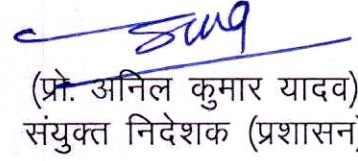 (प्रो. अनिल कुमार यादव)
संयुक्त निदेशक (प्रशासन)